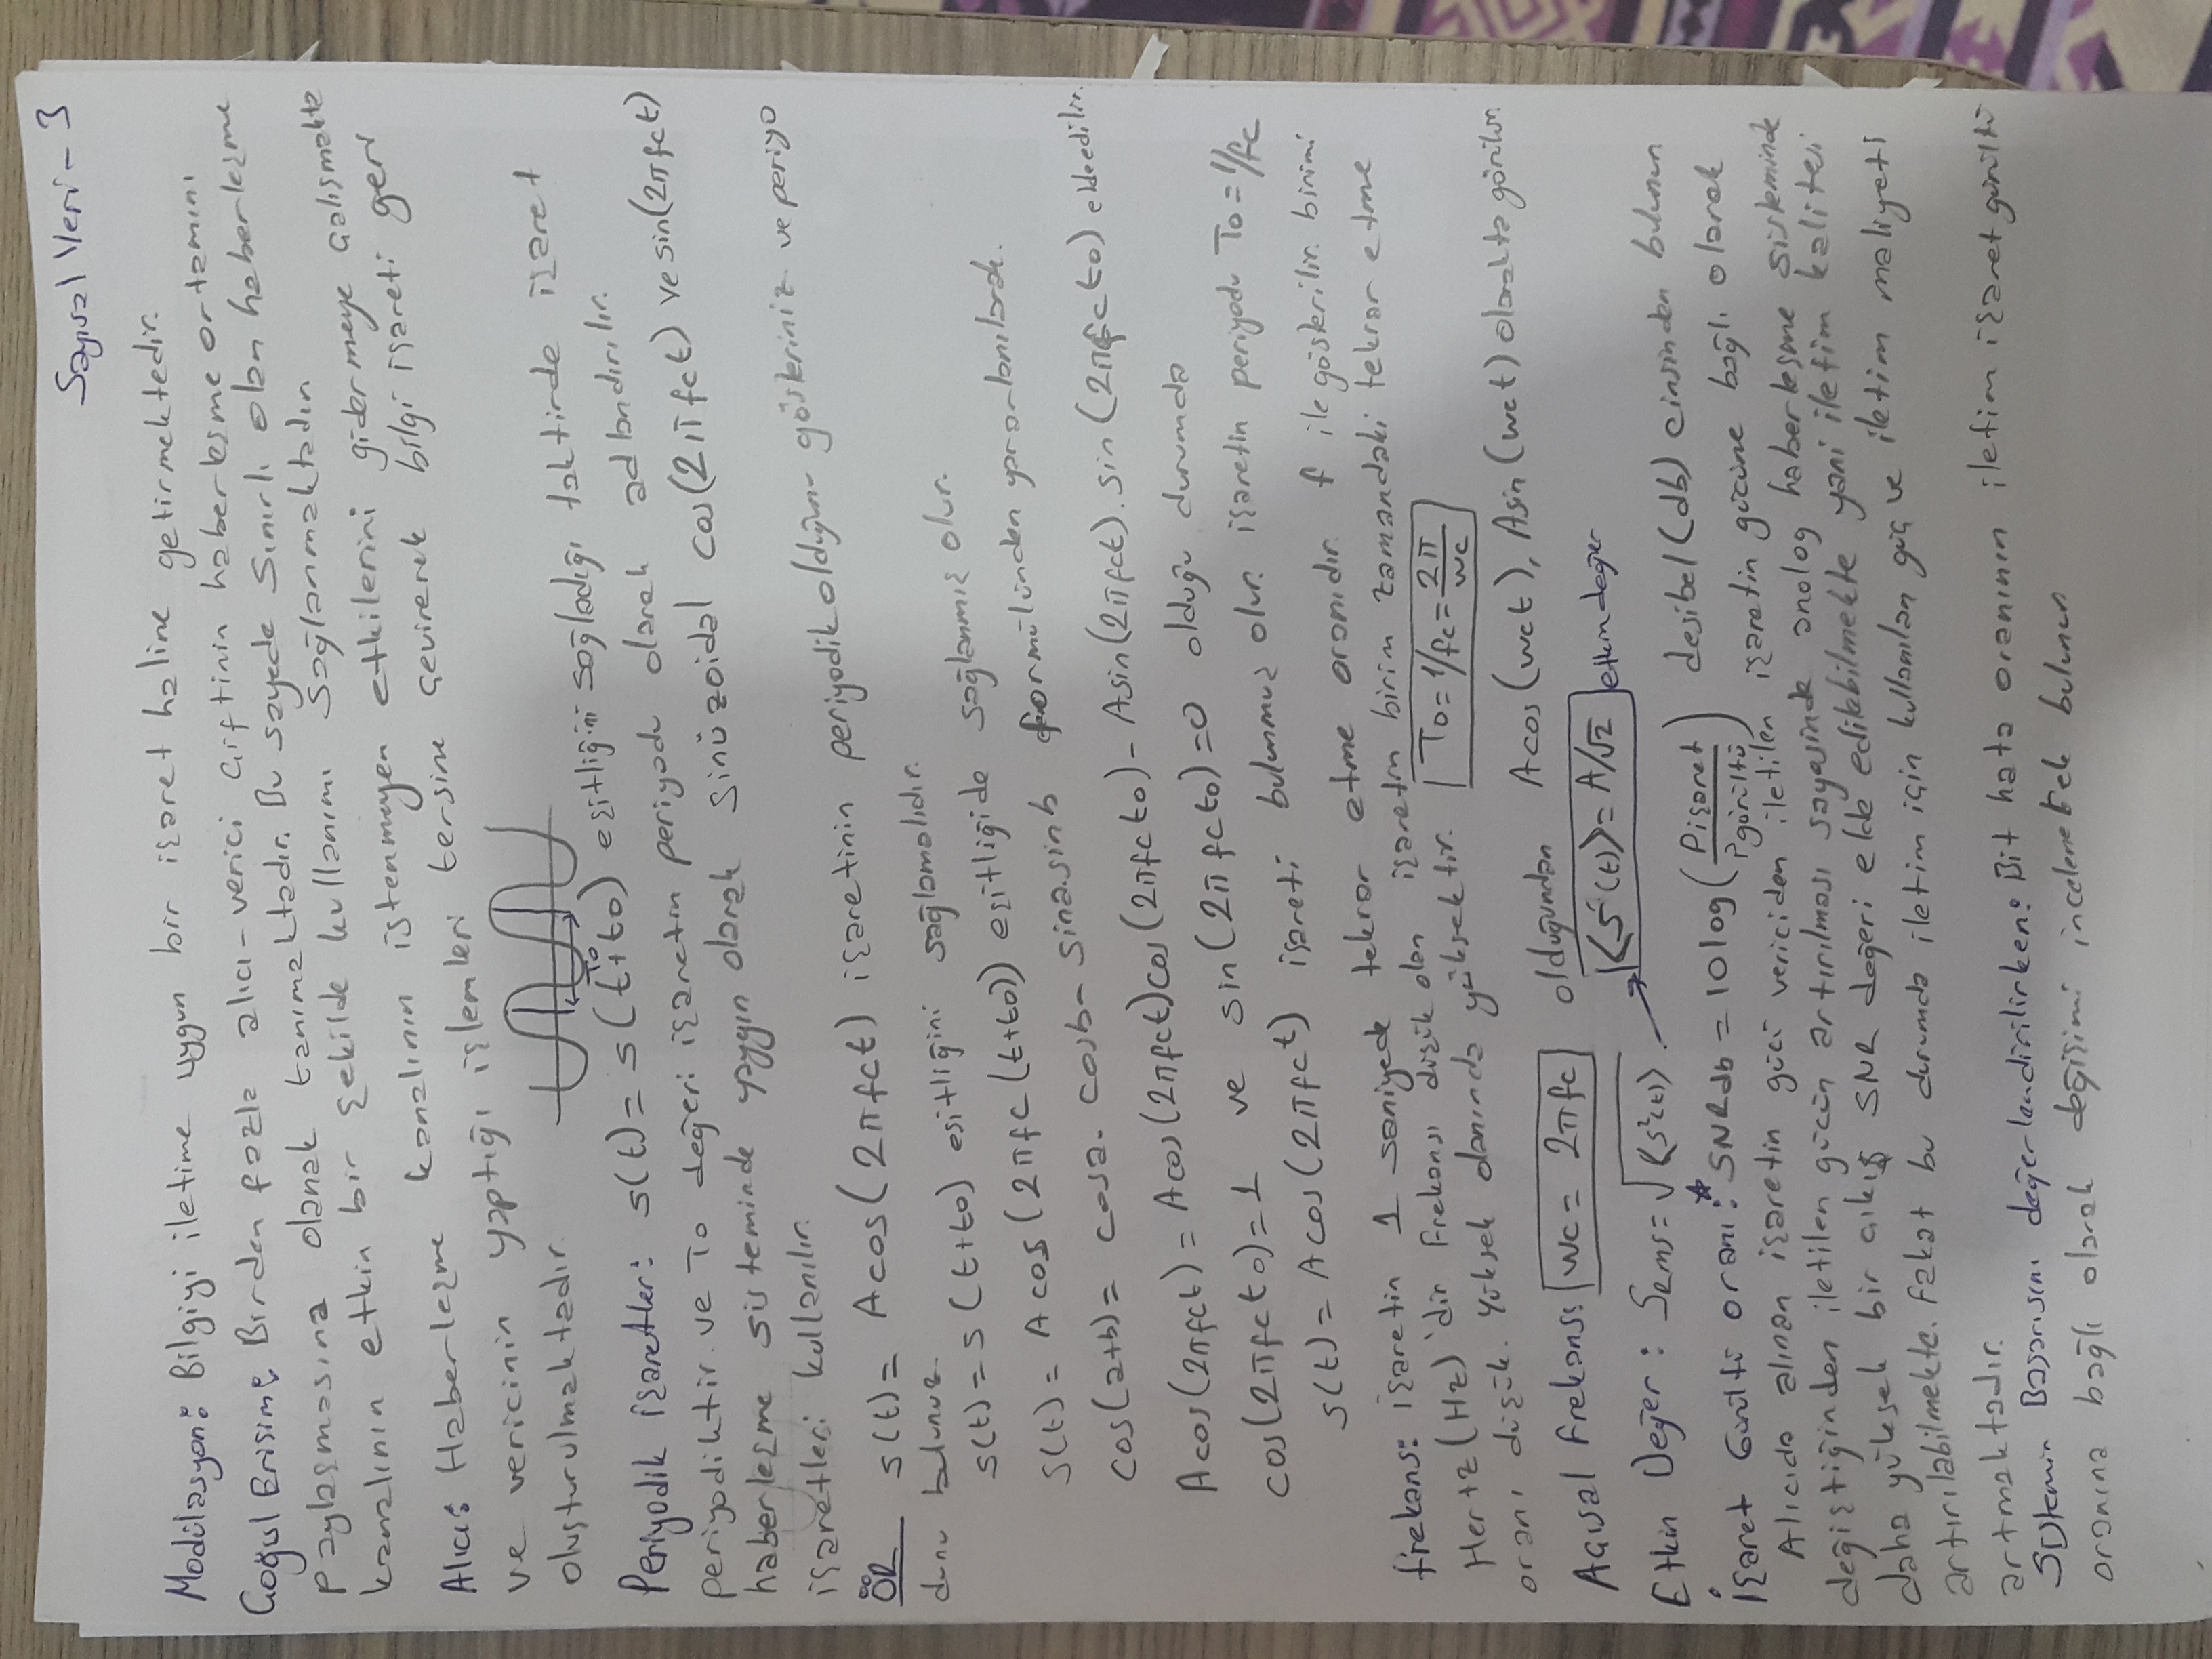 Sayısal Veri - 3
Modülasyon: Bilgiyi iletime uygun bir işaret haline getirmektedir.
Çoğul Erişim: Birden fazla alıcı-verici çiftinin haberleşme ortamını
paylaşmasına olanak tanımaktadır. Bu sayede sınırlı olan haberleşme
kanalının etkin bir şekilde kullanımı sağlanmaktadır.
Alıcı: Haberleşme kanalının istenmeyen etkilerini gidermeye çalışmakta
ve vericinin yaptığı işlemleri tersine çevirerek bilgi işareti geri
oluşturulmaktadır.
To
Periyodik işaretler: s(t) = s(t+to) eşitliğini sağladığı taktirde işaret
periyodiktir ve To değeri işaretin periyodu olarak adlandırılır.
haberleşme sisteminde yaygın olarak sinüzoidal cos(2πfct) ve sin(2πfct)
işaretleri kullanılır.
ÖR s(t) = Acos(2πfct) işaretinin periyodik olduğunu gösteriniz ve periyo
dunu bulunuz.
s(t) = s(t+to) eşitliğini sağlamalıdır.
s(t) = Acos(2πfc(t+to)) eşitliğide sağlanmış olur.
cos(a+b) = cosa. cosb - sina.sinb formülünden yararlanılarak.
Acos(2πfct) = Acos(2πfct)cos(2πfcto) - Asin(2πfct). sin(2πfcto) elde edilir.
cos(2πfcto)=1 ve sin(2πfcto)=0 olduğu durumda
s(t) = Acos(2πfct) işareti bulunmuş olur. işaretin periyodu To = 1/fc
frekans: işaretin 1 saniyede tekrar etme oranıdır. f ile gösterilir. birimi
Hertz(Hz)'dir Frekansı düşük olan işaretin birim zamandaki tekrar etme
oranı düşük. Yüksek olanında yüksektir. To = 1/fc = 2π/wc
Açısal Frekans: wc = 2πfc olduğundan Acos(wct), Asin(wct) olarakta görülür.
Etkin Değer: Srms = √⟨s²(t)⟩ → √⟨s²(t)⟩ = A/√2 etkin değer
İşaret Gürültü oranı: * SNRdb = 10log(Pişaret/Pgürültü) desibel(db) cinsinden bulunur
Alıcıda alınan işaretin gücü vericiden iletilen işaretin gücüne bağlı olarak
değiştiğinden iletilen gücün artırılması sayesinde analog haberleşme sisteminde
daha yüksek bir çıkış SNR değeri elde edilebilmekte yani iletim kalitesi
artırılabilmekte. Fakat bu durumda iletim için kullanılan güç ve iletim maliyeti
artmaktadır.
Sistemin Başarısını değerlendirilirken: Bit hata oranının iletim işaret gürültü
oranına bağlı olarak değişimi incelenerek bulunur